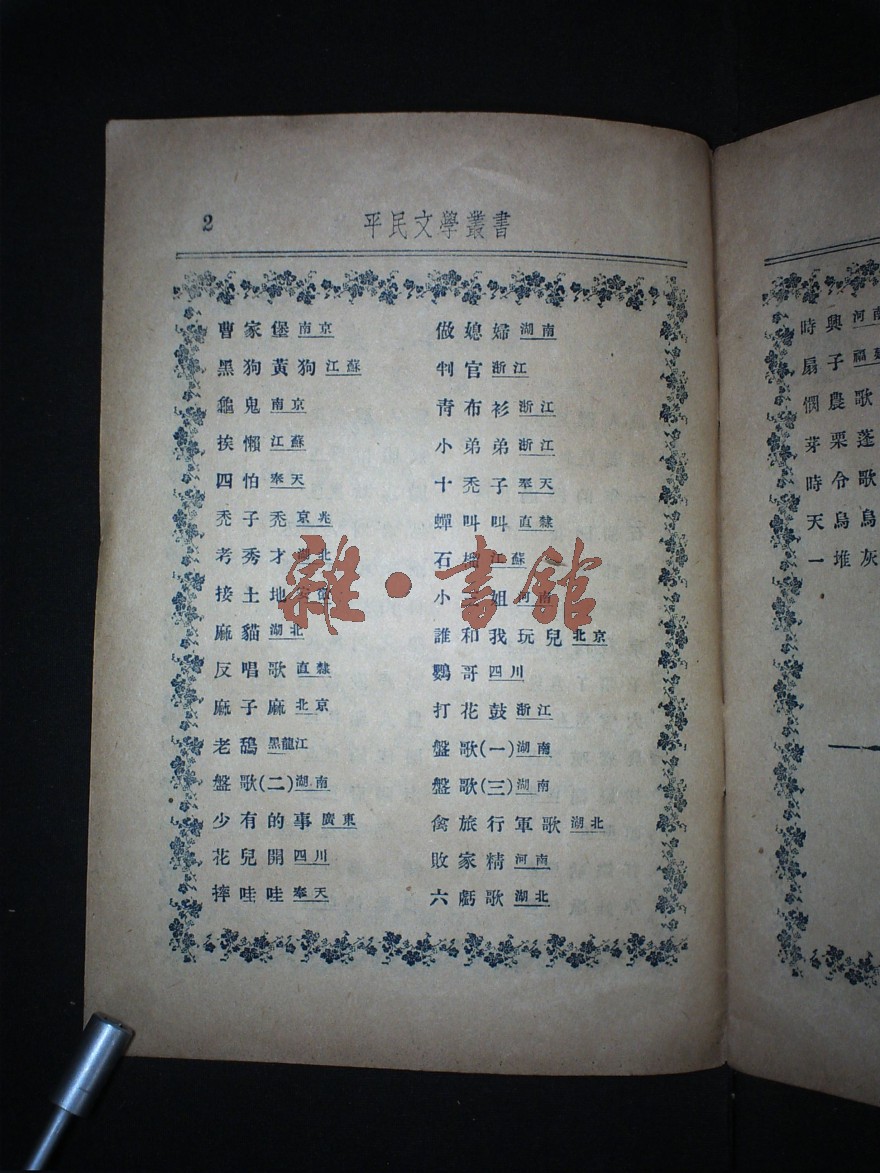 2
平民文學叢書
曹家堡 南京
做媳婦 湖南
黑狗黃狗 江蘇
判官 浙江
龜鬼 南京
青布衫 浙江
挨懶 江蘇
小弟弟 浙江
四怕 奉天
十禿子 奉天
禿子禿 京兆
蟬叫叫 直隸
考秀才 湖北
石榴 江蘇
接土地 安徽
小 姐 河南
麻貓 湖北
誰和我玩兒 北京
反唱歌 直隸
鸚哥 四川
麻子麻 北京
打花鼓 浙江
老鴰 黑龍江
盤歌(一) 湖南
盤歌(二) 湖南
盤歌(三) 湖南
少有的事 廣東
禽旅行軍歌 湖北
花兒開 四川
敗家精 河南
摔哇哇 奉天
六虧歌 湖北
時興 河南
扇子 福建
憫農歌
芽栗蓬
時令歌
天烏烏
一堆灰
雜·書館